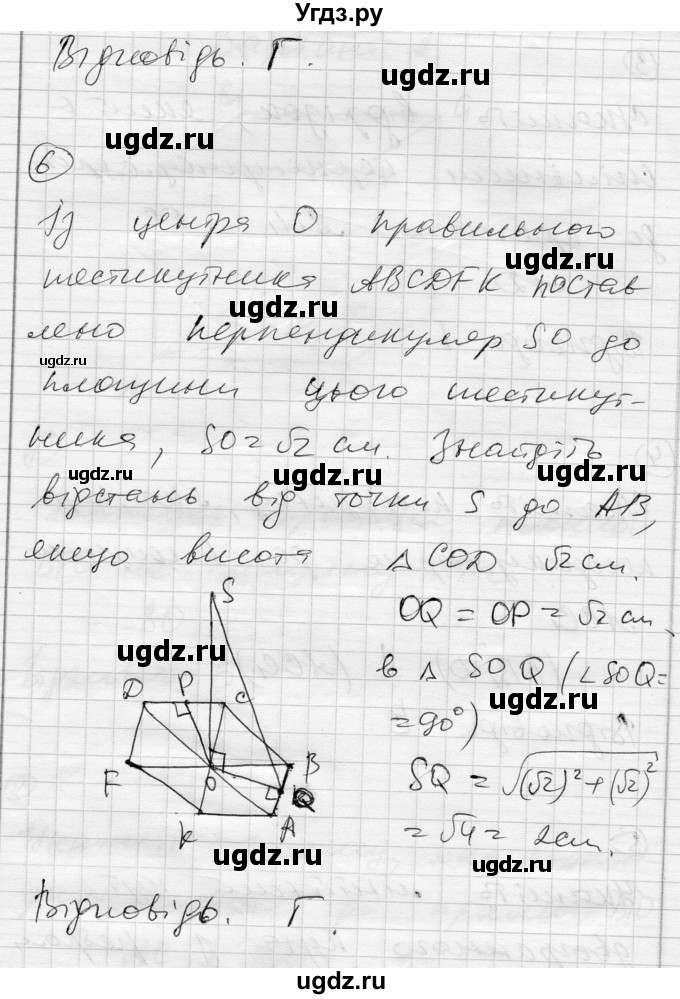 Угдз.ру
Відповідь. Г.
ugdz.ru
ugdz.ru
6
Із центра О правильного
ugdz.ru
шестикутника ABCDFK постав
ugdz.ru
лено перпендикуляр SO до
ugdz.ru
площини цього шестикут-
ника, SO = √2 см. Знайдіть
ugdz.ru ugdz.ru
відстань від точки S до AB,
якщо висота Δ COD √2 см.
ugdz.ru
S
OQ = OP = √2 см.
ugdz.ru
в Δ SOQ (∠SOQ =
ugdz.ru
= 90°)
D P C
F O B
Q
K A
SQ = √(√2)² + (√2)²
= √4 = 2 см.
ugdz.ru
ugdz.ru
Відповідь. Г.
ugdz.ru
ugdz.ru